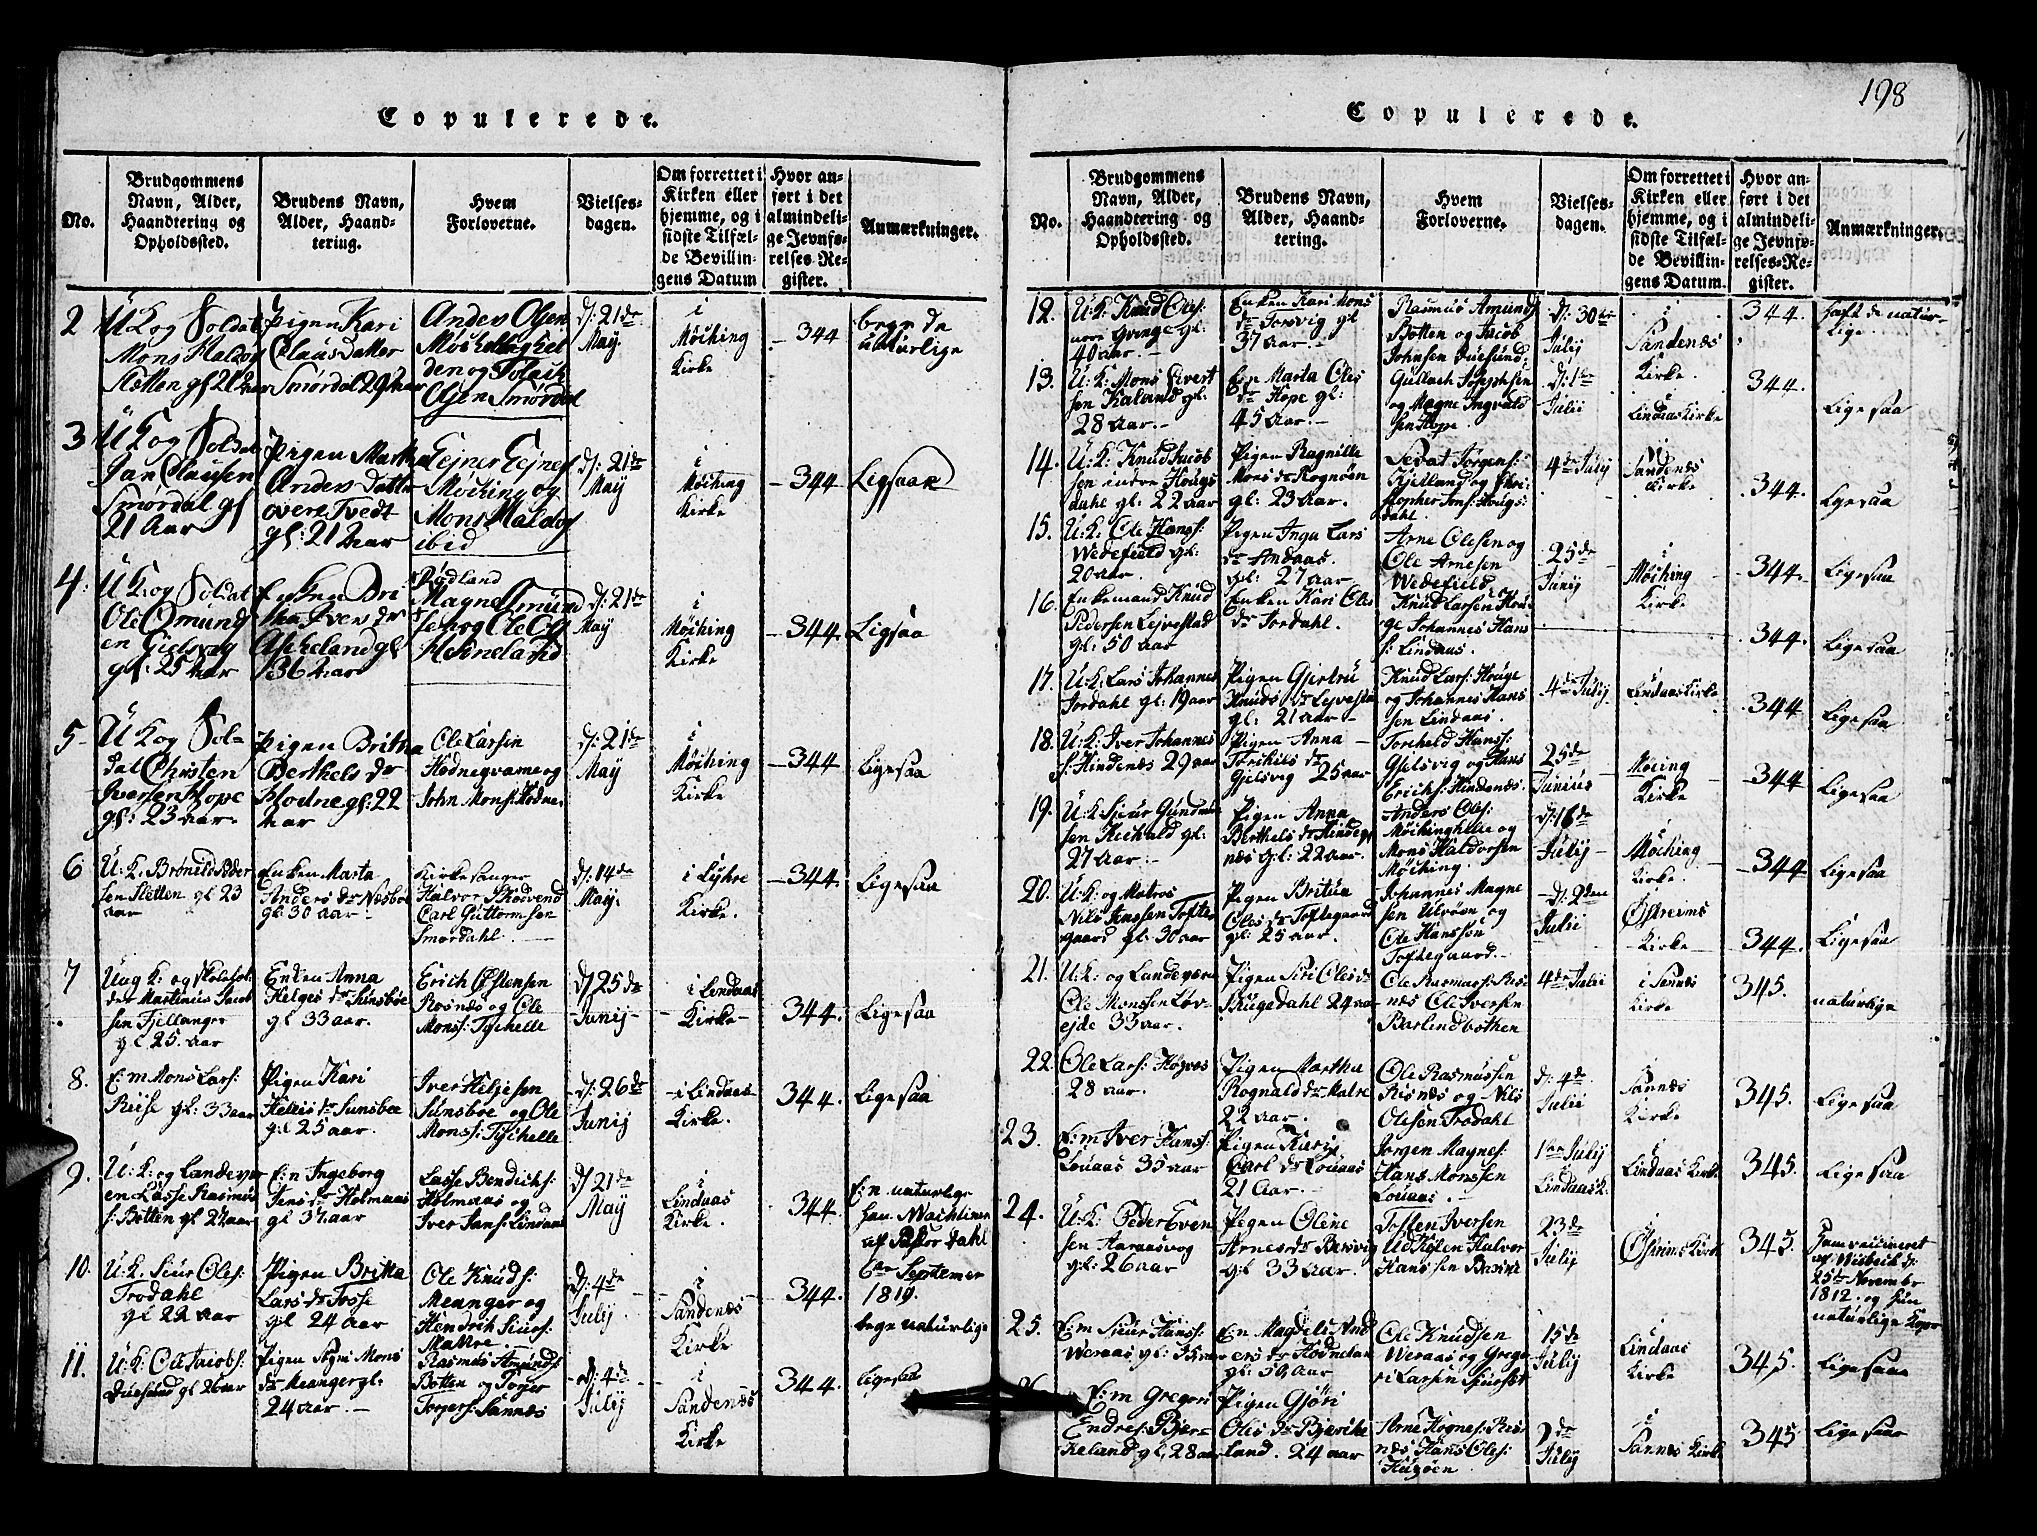 198
Copulerede.
No.
Brudgommens
Navn, Alder,
Haandtering og
Opholdssted.
Brudens Navn,
Alder, Haand-
tering.
Hvem
Forloverne.
Vielses-
dagen.
Om forrettet i
Kirken eller
hjemme, og i
sidste Tilfæl-
de Bevillin-
gens Datum
Hvor an-
ført i det
almindeli-
ge Jevnfø-
relses-Re-
gister.
Anmærkninger.
2
U K og Soldat
Mons Haldog
Sletten gl 20 aar
Pigen Kari
Claus Datter
Smørdal 29 aar
Anders Olsen
Møching
den og
Olsen Smørdal
d: 21de
May
i
Møching
Kirke
344
bege da
naturlige
3
U K og Soldat
Jan Clausen
Smørdal gl
21 Aar
Pigen Martha
Anders Datter
overe Tvedt
gl: 21 Aar
Ejner Ejners
Møching og
Mons Haldog
ibid
d: 21de
May
i
Møching
Kirke
344
Ligsaae
4
U K og Soldat
Ole Omund
en Gielsvog
gl: 25 Aar
Enken Bri
tha Ivers dr
Askeland gl
36 Aar
Rødland
Magne Omund
sen og Ole
Helneland
d: 21de
May
i
Møching
Kirke
344
Ligsaa
5
U K og Sol-
dat Christen
Iversen Hope
gl: 23 aar.
Pigen Britha
Berthels dr
Hodne gl: 22
aar
Ole Larsen
Hodne og
John Mons: Hodne
d: 21de
May
i
Møching
Kirke
344
Ligesaa
6
U. K. Peder
sen Sletten gl 23
aar
Enken Marta
Anders dr
gl 30 aar
Kirkesanger
Halvor
Carl Guttormsen
Smørdahl
d: 14de
May.
i Lyhre
Kirke.
344.
Ligesaa
7
Ung K: og skolehol
der Martinus Jacob
sen Fjellanger
gl 25. aar
Enken Anna
Helges dr Sunsbøe
gl 33 aar.
Erich Østensen
Rosnæs og Ole
Mons: Tschelle
d 25de
Junij
i Lindaas
Kirke
344.
Ligesaa
8.
E: m Mons Lars:
Riise gl. 33 aar
Pigen Kari
Helies dr Sunsbøe
gl 25 aar.
Iver Heljesen
Sunsbøe og Ole
Mons: Tschelle
d: 26de
Junij
i Lindaas
Kirke.
344.
Ligesaa
9.
U: K: og Landever
en Lasse Rasmus
s: Botten gl 27 aar
E: n Ingeborg
Jens dr Holmaas
gl 37 aar
Lasse Bendichs:
Holmaas og
Iver Jans: Lindaas
d 21de
May
i
Lindaas
Kirke.
344.
E: n naturlige
han Vachsiner
af Pastor Dahl
6te September
1810.
10.
U: K. Siur Oles:
Frodahl
gl 22 aar
Pigen Britta
Lars dr Fosse
gl 24 aar
Ole Knuds:
Meanger og
Hendrik Siurs:
Matre.
d: 4de
Julij.
i
Sandenæs
Kirke
344.
bege naturlige
11.
U: K: Ole Jacobs:
Duesund gl 26 aar
Pigen Mons
dr Meanger gl.
24 aar.
Rasmus Amunds
Botten og Torjer
Torjers: Sannæs
d: 4de
Julij
i
Sandenæs
Kirke
344.
ligesaa
Copulerede.
No.
Brudgommens
Navn, Alder,
Haandtering og
Opholdssted.
Brudens Navn,
Alder, Haand-
tering.
Hvem
Forloverne.
Vielses-
dagen.
Om forrettet i
Kirken eller
hjemme, og i
sidste Tilfæl-
de Bevillin-
gens Datum.
Hvor an-
ført i det
almindeli-
ge Jevnfø-
relses-Re-
gister.
Anmærkninger.
12.
U: K: Knud Oles:
gl:
40 aar.
Enken Kari Mons
dr Torsvig gl
37 aar.
Rasmus Amunds
Botten og Jacob
Johnsen Duesund
d: 30te
Julij
i
Sandenæs
Kirke.
344.
haft de natur-
lige.
13.
U: K: Mons Sivert
sen Kaland gl:
28 aar.
En Marta Oles
dr Hope gl:
45 aar.
Gullach Josephsen
og Magne Ingvals
sen Hope.
d: 1te
Julii
i
Lindaas Kirke
344.
Ligesaa
14.
U: K: Knud Jacob
sen indre Hougs
dahl gl: 22 aar
Pigen Ragnille
Mons dr Rognøen
gl: 23 Aar.
Sevat Jørgens:
Kjilland og Chri
stopher Jons: Hougs
dahl.
4de Julij
i
Sandenæs
Kirke
344.
Ligesaa
15.
U: K: Ole Hans:
Wedefield gl:
20 aar.
Pigen Inga Lars
dr Andaas.
gl: 27 aar
Arne Olesen og
Ole Arnesen
Wedefield
25de
Junij
i
Møching
Kirke
344.
Ligesaa
16.
Enkemand Knud
Pedersen Lejvestad
gl: 50 aar
Enken Kari Oles
dr Fordahl.
Knud Larsen Hou
ge Johannes Hans
s: Lindaas.
344.
Ligesaa
17.
U: K: Lars Johannes
Fordahl gl: 19 aar
Pigen Gjertru
Knuds dr Lejvestad
gl: 21 aar
Knud Lars: Houge
og Johannes Hans
sen Lindaas.
4de Julij.
Lindaas Kirke
344
Ligesaa
18.
U: K: Iver Johannes
s: Hindenæs 29 aar
Pigen Anna
Torskils dr
Gjelsvig 25 aar
Torskeld Hans:
Gjelsvig og Hans
Erichs: Hindenæs.
25de
Junius
i
Møching
Kirke
344
Ligesaa
19.
U: K: Siur Gundmu
sen Keihald gl:
27 Aar.
Pigen Anna
Berthels dr Hinde
næs gl: 22 aar.
Anders Oles:
Møchinghelle og
Mons Haldorsen
Møching.
d: 16de
Julij
i
Møching
Kirke.
344
Ligesaa
20.
U: K: og Matros
Nils Jenssen Tofte
gaard gl: 30 aar
Pigen Britha
Oles dr Toftegaard
gl: 25 aar.
Johannes Magne
sen Utvøen og
Ole Hanssen
Toftegaard.
d: 2den
Julii
Østreims
Kirke
344.
Ligesaa
21.
U: K: og Landeværn
Ole Monssen Løv-
ejde 33 aar.
Pigen Siri Oles dr
Skugedahl 24 aar
Ole Rasmus: Ris
næs Ole Iversen
Barlindbothen
4de Julii
i Sannæs
Kirke
345.
naturlige
22.
Ole Lars: Høgnes
28 aar.
Pigen Martha
Rognald dr Matre
22 aar.
Ole Rasmussen
Risnæs og Nils
Olesen Frodahl
d: 4de
Julii
i
Sannæs
Kirke
345.
Ligesaa
23.
E: m Iver Hans:
Louaas 35 aar
Pigen Karij
Carl dr Louaas
21 Aar.
Jørgen Magnes:
Hans Monssen
Louaas.
1te Julij
Lindaas K.
i
Lindaas Kirke
345.
Ligesaa
24.
U: K: Peder Even
sen Aaraasvog
gl: 26 aar
Pigen Oline
Arnes dr Bersvig
gl: 33 Aar.
Tosten Iversen
Halvor
Hanssen
23de
Julij
i
Østreims Kirke
345.
Ham vaccineret
af Wisbech d:
25de November
1812. og hun
naturlige Koper
25.
E: m Siur Hans:
Weraas gl:
En Magdeli And
ers dr Hodneland
gl: 39 aar
Ole Knudsen
Weraas og Grego
ri Larsen
15de
Julij
i
Lindaas
Kirke
345.
Ligesaa
26
E: m Gregori
Endres: Bjer-
keland gl: 28 aar
Pigen Gjøri
Oles dr Bjerike
land. 24 aar
Arne Høgnes: Ris
næs Hans Oles:
Hugøen
2de
Julij
i
Sannæs Kirke
345
Ligesaa